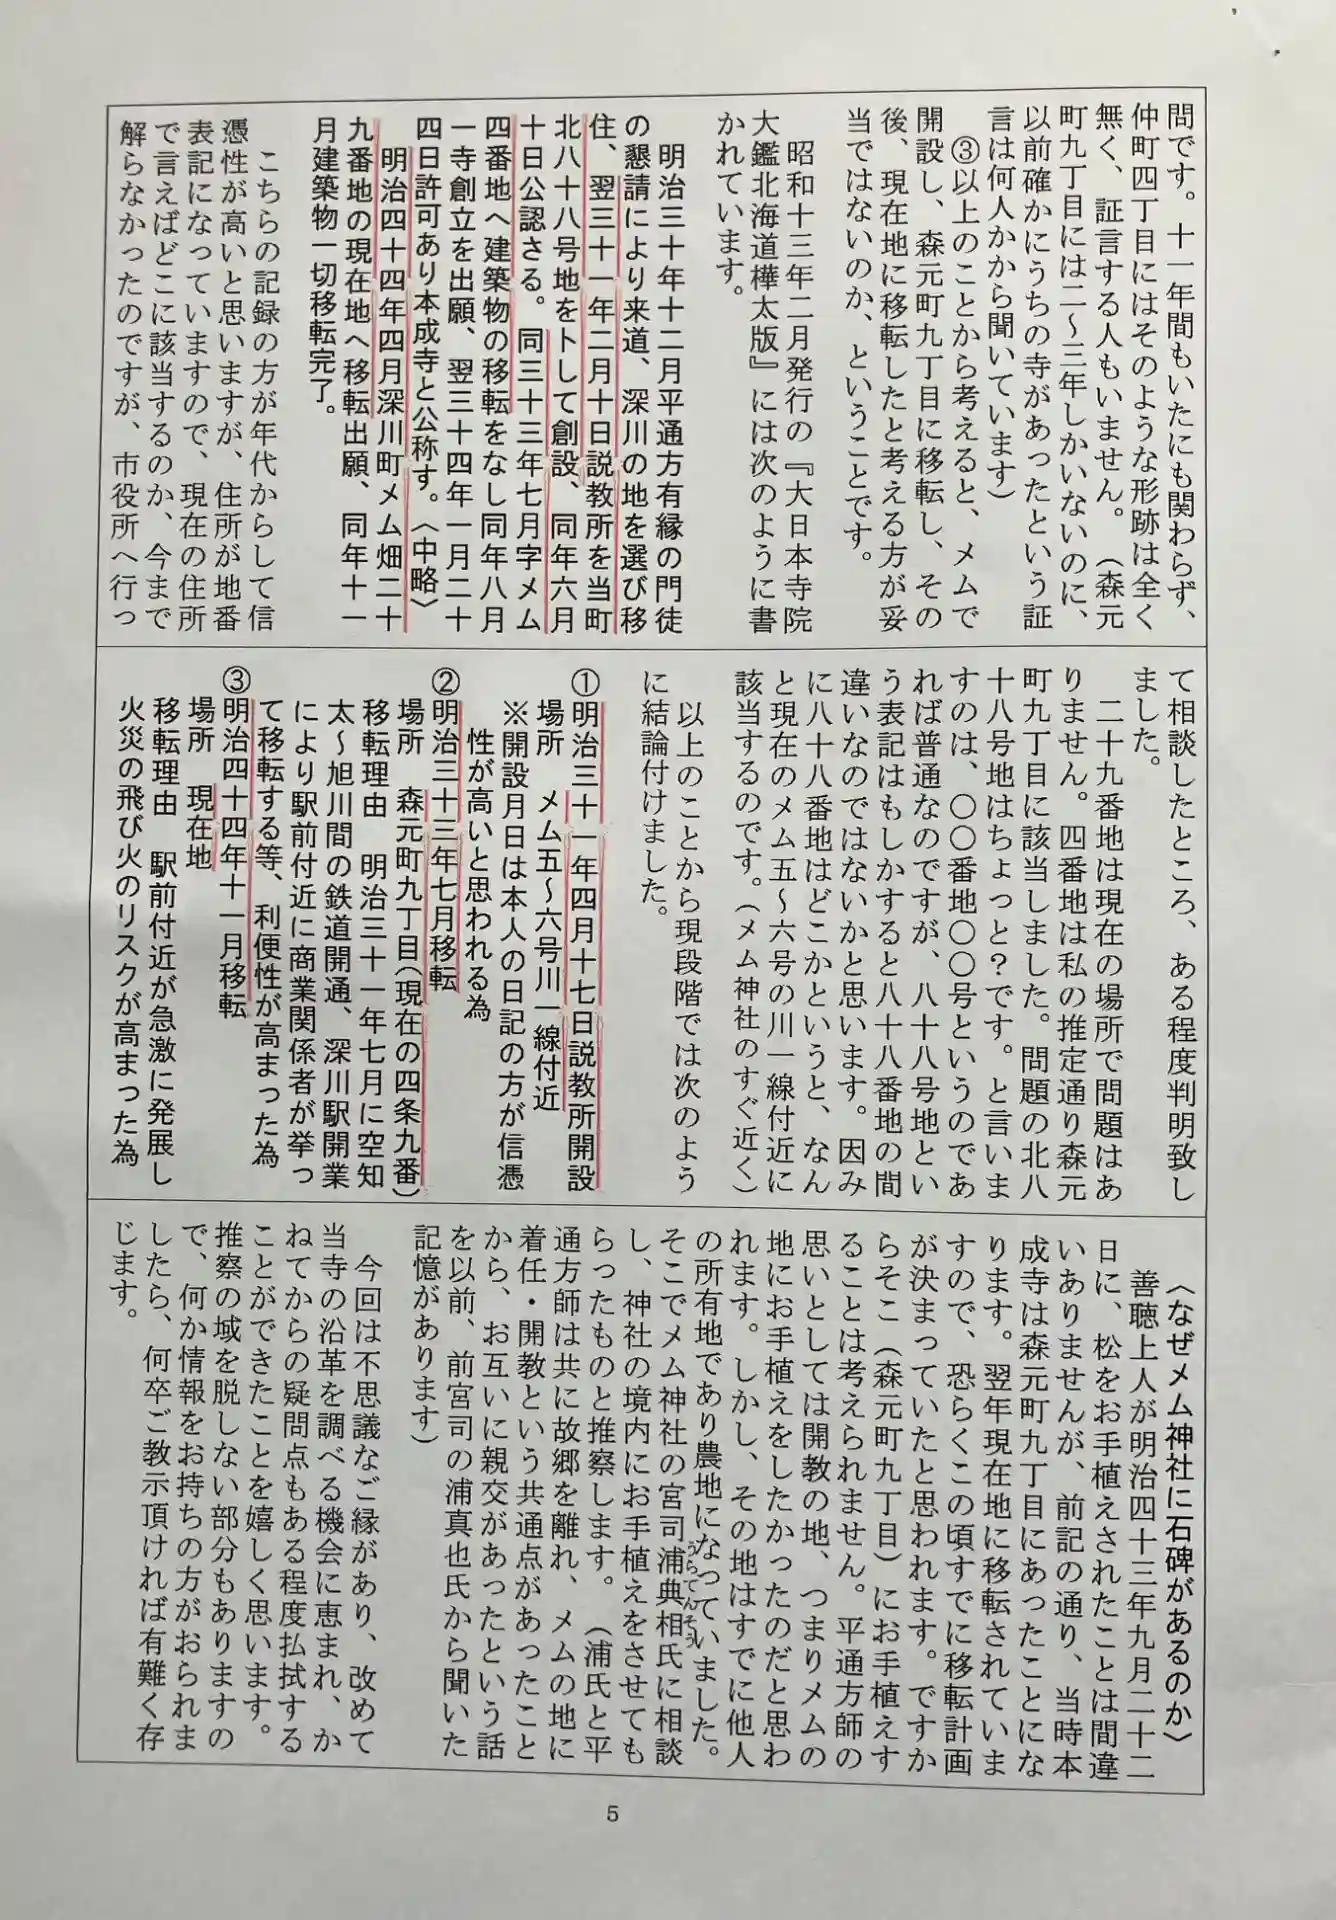 問です。十一年間もいたにも関わらず、
仲町四丁目にはそのような形跡は全く
無く、証言する人もいません。（森元
町九丁目には二～三年しかいないのに、
以前確かにうちの寺があったという証
言は何人かから聞いています）
③以上のことから考えると、メムで
開設し、森元町九丁目に移転し、その
後、現在地に移転したと考える方が妥
当ではないのか、ということです。
昭和十三年二月発行の『大日本寺院
大鑑北海道樺太版』には次のように書
かれています。
明治三十年十二月平通方有縁の門徒
の懇請により来道、深川の地を選び移
住、翌三十一年二月十日説教所を当町
北八十八号地をトして創設、同年六月
十日公認さる。同三十三年七月字メム
四番地へ建築物の移転をなし同年八月
一寺創立を出願、翌三十四年一月二十
四日許可あり本成寺と公称す。〈中略〉
明治四十四年四月深川町メム畑二十
九番地の現在地へ移転出願、同年十一
月建築物一切移転完了。
こちらの記録の方が年代からして信
憑性が高いと思いますが、住所が地番
表記になっていますので、現在の住所
で言えばどこに該当するのか、今まで
解らなかったのですが、市役所へ行っ
て相談したところ、ある程度判明致し
ました。
二十九番地は現在の場所で問題はあ
りません。四番地は私の推定通り森元
町九丁目に該当しました。問題の北八
十八号地はちょっと？です。と言いま
すのは、〇〇番地〇〇号というのであ
れば普通なのですが、八十八号地とい
う表記はもしかすると八十八番地の間
違いなのではないかと思います。因み
に八十八番地はどこかというと、なん
と現在のメム五～六号の川一線付近に
該当するのです。（メム神社のすぐ近く）
以上のことから現段階では次のよう
に結論付けました。
①明治三十一年四月十七日説教所開設
場所　メム五～六号川一線付近
※開設月日は本人の日記の方が信憑
性が高いと思われる為
②明治三十三年七月移転
場所　森元町九丁目（現在の四条九番）
移転理由　明治三十一年七月に空知
太～旭川間の鉄道開通、深川駅開業
により駅前付近に商業関係者が挙っ
て移転する等、利便性が高まった為
③明治四十四年十一月移転
場所　現在地
移転理由　駅前付近が急激に発展し
火災の飛び火のリスクが高まった為
〈なぜメム神社に石碑があるのか〉
善聴上人が明治四十三年九月二十二
日に、松をお手植えされたことは間違
いありませんが、前記の通り、当時本
成寺は森元町九丁目にあったことにな
ります。翌年現在地に移転されていま
すので、恐らくこの頃すでに移転計画
が決まっていたと思われます。ですか
らそこ（森元町九丁目）にお手植えす
ることは考えられません。平通方師の
思いとしては開教の地、つまりメムの
地にお手植えをしたかったのだと思わ
れます。しかし、その地はすでに他人
の所有地であり農地になっていました。
そこでメム神社の宮司浦典相氏に相談
うらてんそう
し、神社の境内にお手植えをさせても
らったものと推察します。（浦氏と平
通方師は共に故郷を離れ、メムの地に
着任・開教という共通点があったこと
から、お互いに親交があったという話
を以前、前宮司の浦真也氏から聞いた
記憶があります）
今回は不思議なご縁があり、改めて
当寺の沿革を調べる機会に恵まれ、か
ねてからの疑問点もある程度払拭する
ことができたことを嬉しく思います。
推察の域を脱しない部分もありますの
で、何か情報をお持ちの方がおられま
したら、何卒ご教示頂ければ有難く存
じます。
5